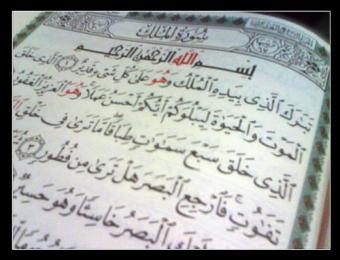 سُورَةُ الْمُلْكِ
بِسْمِ اللَّهِ الرَّحْمَٰنِ الرَّحِيمِ
تَبَٰرَكَ الَّذِى بِيَدِهِ الْمُلْكُ وَهُوَ عَلَىٰ كُلِّ شَىْءٍ قَدِيرٌ ١ الَّذِى خَلَقَ
الْمَوْتَ وَالْحَيَوٰةَ لِيَبْلُوَكُمْ أَيُّكُمْ أَحْسَنُ عَمَلًا وَهُوَ الْعَزِيزُ الْغَفُورُ
الَّذِى خَلَقَ سَبْعَ سَمَٰوَٰتٍ طِبَاقًا مَّا تَرَىٰ فِى خَلْقِ
تَفَٰوُتٍ فَارْجِعِ الْبَصَرَ هَلْ تَرَىٰ مِن فُطُورٍ ٣
الْبَصَرُ خَاسِئًا وَهُوَ حَسِيرٌ